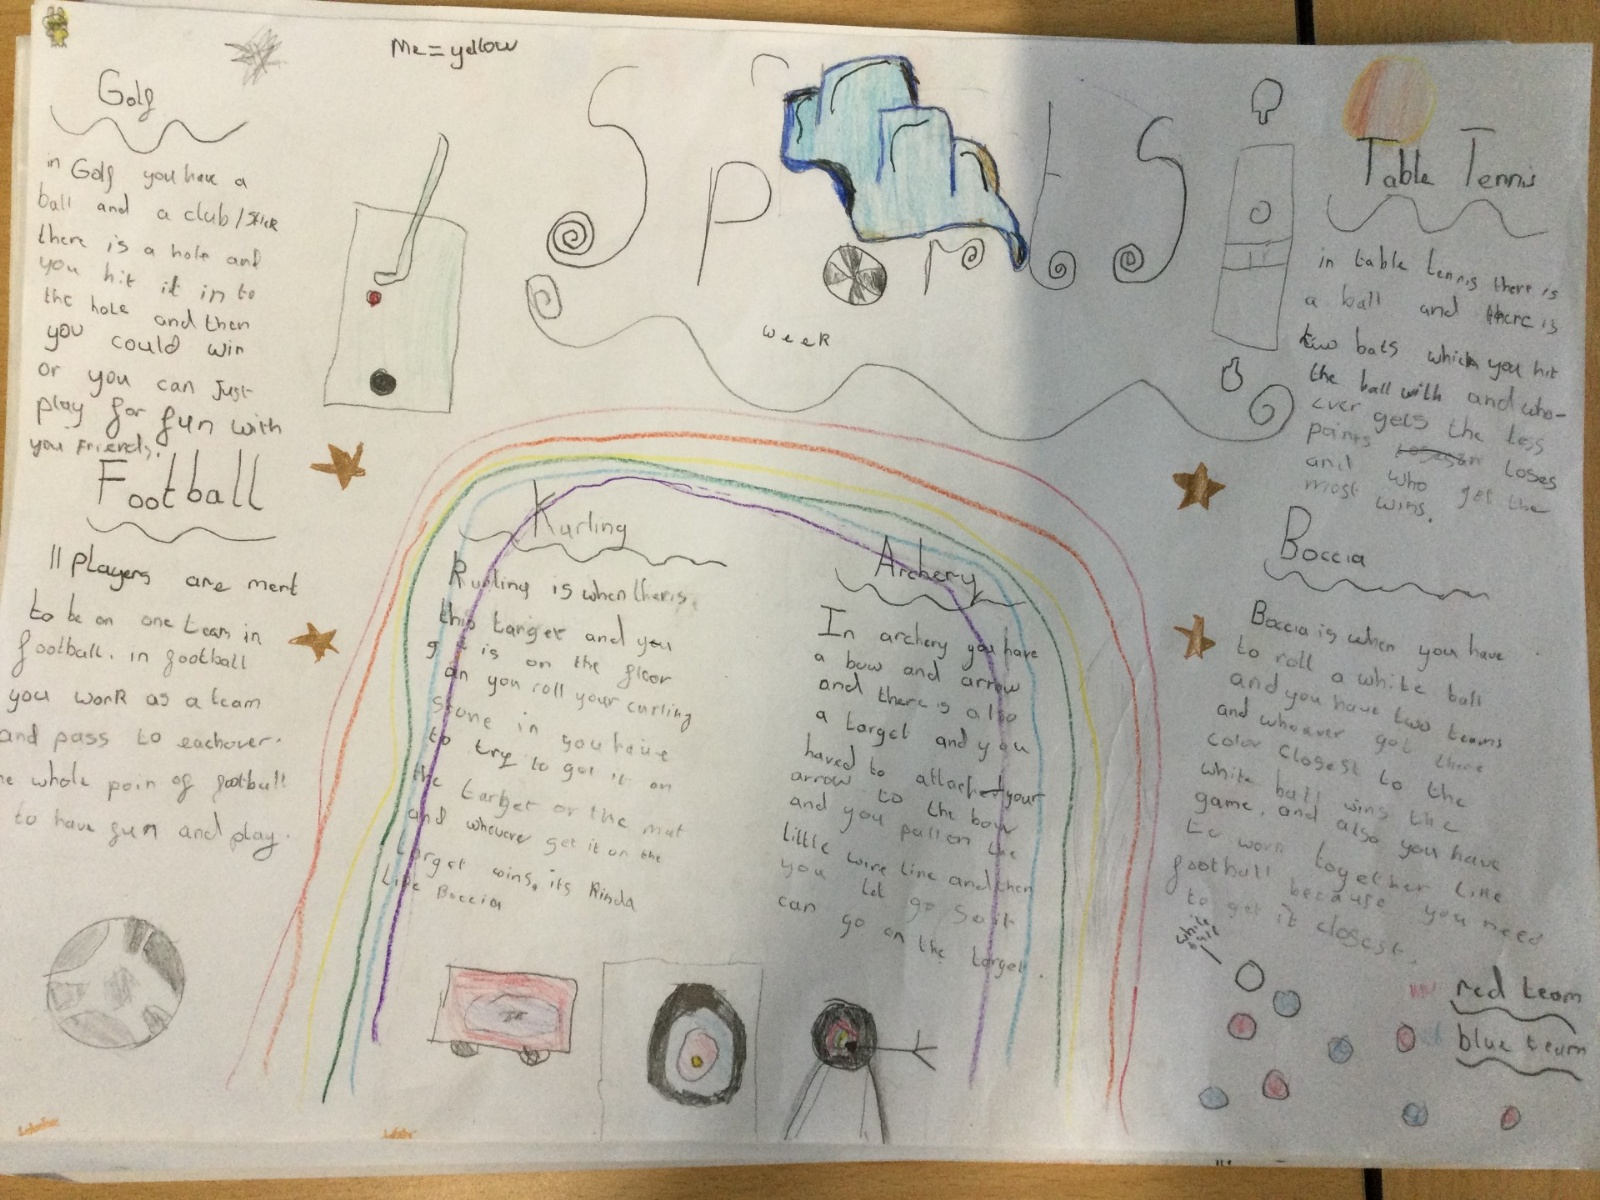 Me = yellow
Sports
week
Golf
in Golf you have a
ball and a club/stick
there is a hole and
you hit it in to
the hole and then
you could win
or you can just
play for fun with
you friends.
Football
11 players are ment
to be on one team in
football. in football
you work as a team
and pass to eachover.
whole poin of football
to have fun and play.
Kurling
Kurling is when theris
this target and you
is on the floor
an you roll your curling
stone in you have
to try to get it on
the target or the mat
and whoever get it on the
target wins, its Kinda
Like Boccia
Archery
In archery you have
a bow and arrow
and there is also
a target and you
haved to attached your
arrow to the bow
and you pull on the
little wire line and then
you let go so it
can go on the target.
Table Tennis
in table tennis there is
a ball and there is
two bats which you hit
the ball with and who-
ever gets the less
points loses
and who get the
most wins.
Boccia
Boccia is when you have
to roll a white ball
and you have two teams
and whoever got there
color closest to the
white ball wins the
game, and also you have
to work together like
football because you need
to get it closest.
white
ball
red team
blue team